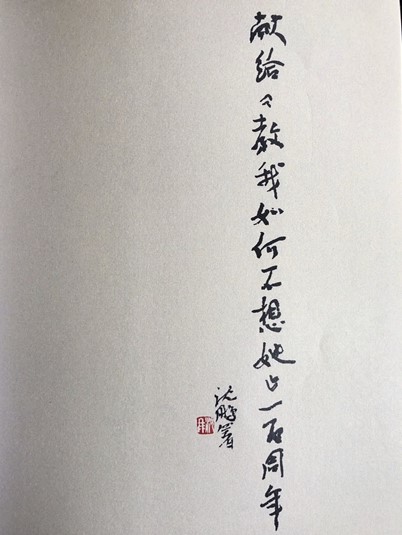 献给《教我如何不想她》一百周年
沈鹏署